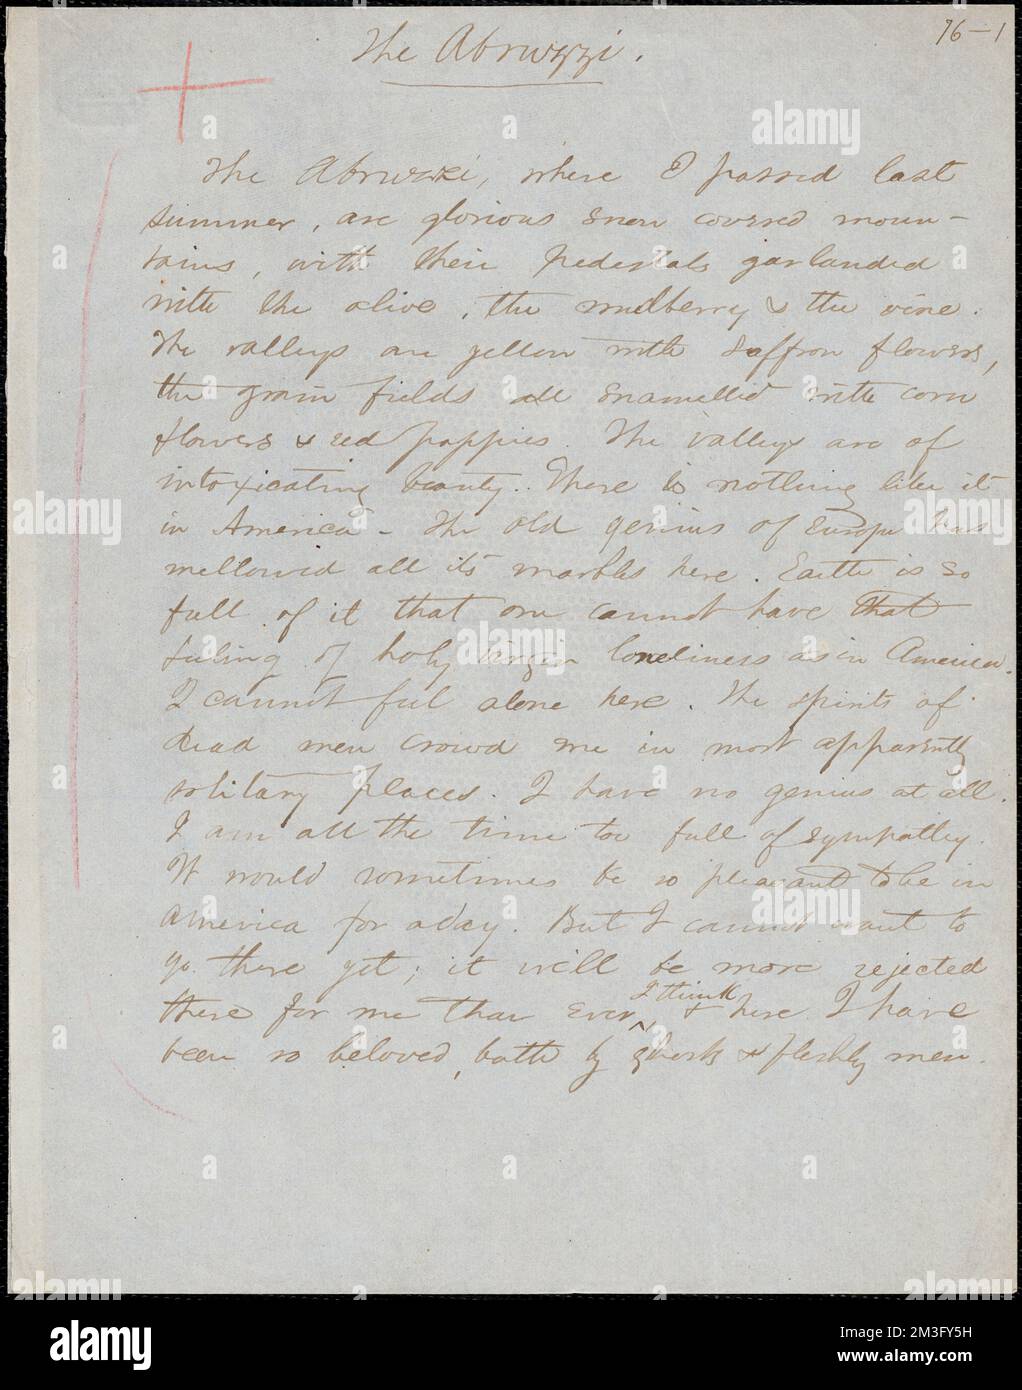 76-1
The Abruzzi.
The Abruzzi, where I passed last
summer, are glorious snow covered moun-
tains, with their pedestals garlanded
with the olive, the mulberry & the vine.
The valleys are yellow with saffron flowers,
the grain fields all enamelled with corn
flowers & red poppies. The valleys are of
intoxicating beauty. There is nothing like it
in America - The old genius of Europe has
mellowed all its marbles here. Earth is so
full of it that one cannot have that
feeling of holy virgin loneliness as in America.
I cannot feel alone here. The spirits of
dead men crowd me in most apparently
solitary places. I have no genius at all.
I am all the time too full of sympathy.
It would sometimes be so pleasant to be in
America for a day. But I cannot want to
go there yet; it will be more rejected
I think
there for me than ever, & here I have
been so beloved, both by ghosts & fleshly men.
alamy
Image ID: 2M3FY5H
www.alamy.com